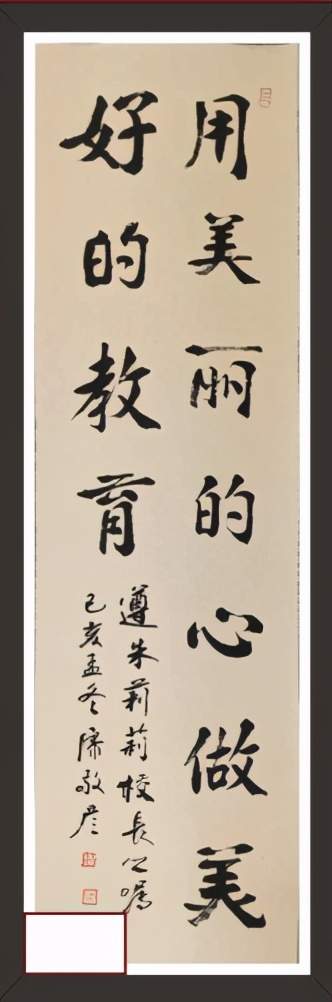 用美丽的心做美
好的教育
遵朱莉莉校長公嘱
己亥孟冬 敬彦